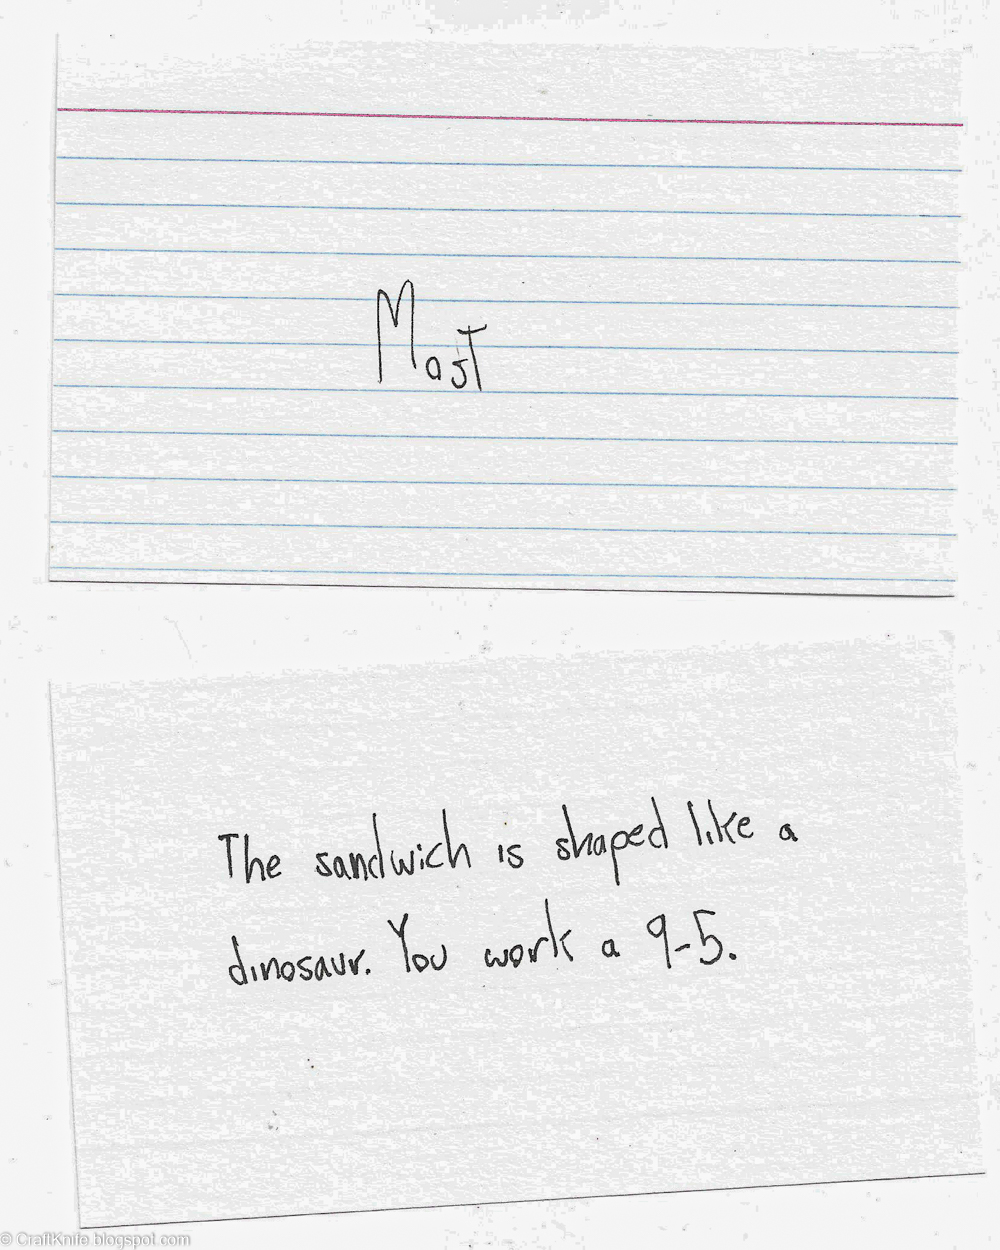 Mast
The sandwich is shaped like a
dinosaur. You work a 9-5.
© CraftKnife.blogspot.com